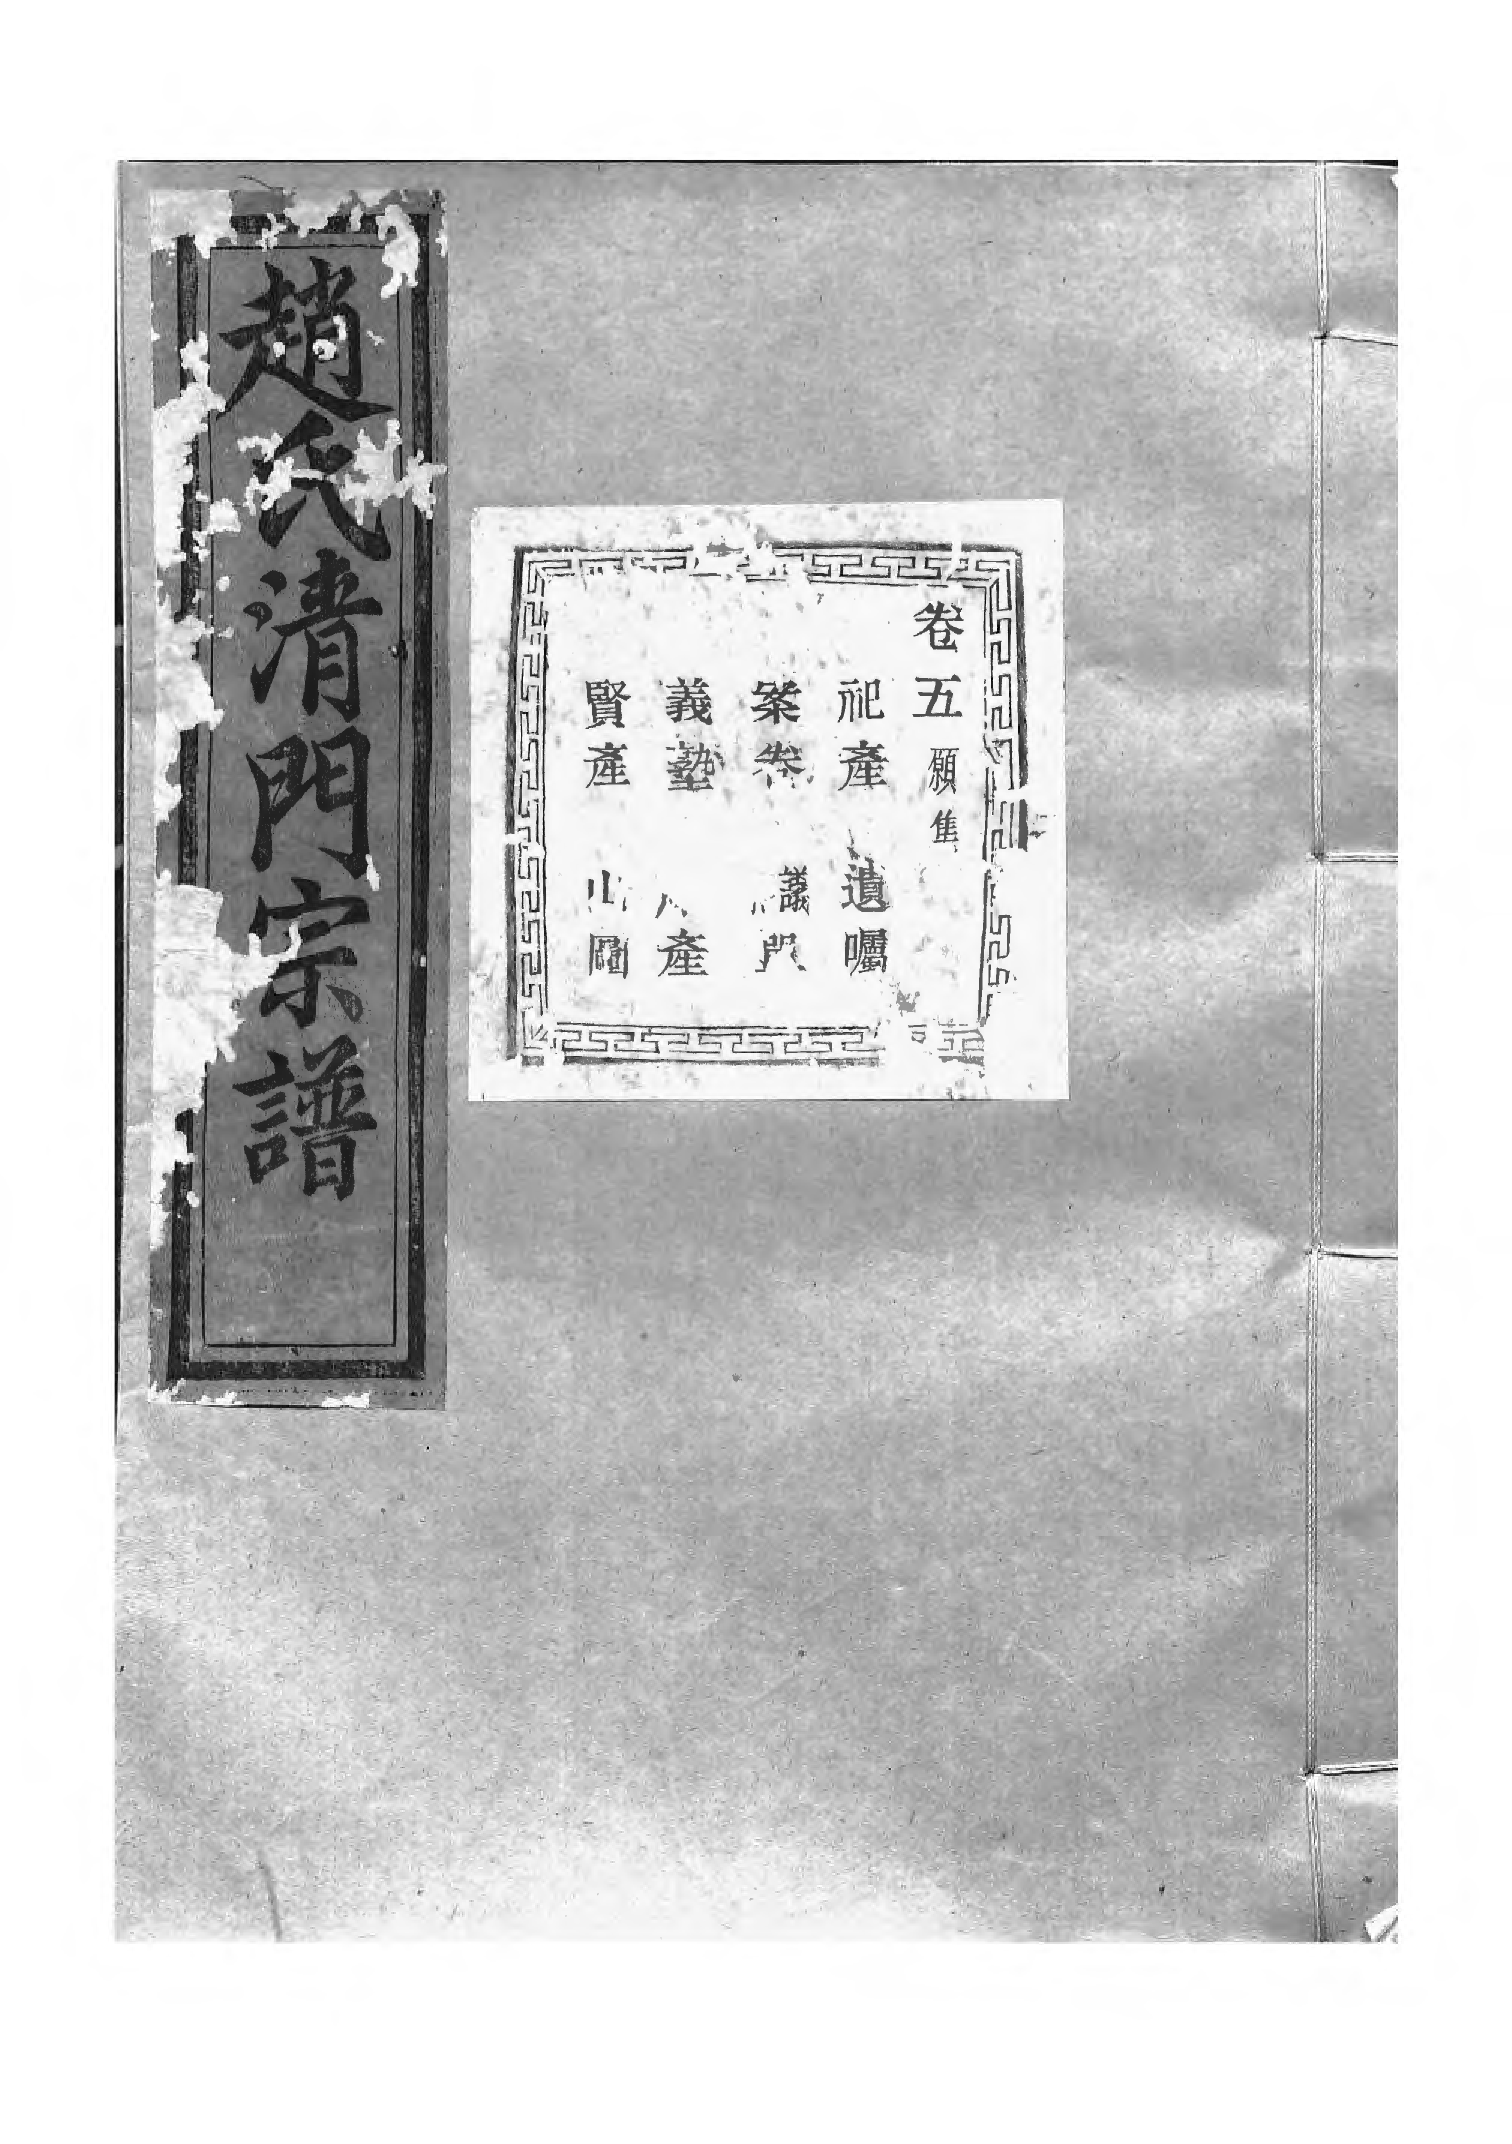 趙氏清門宗譜
卷五 願集
祀產 遺囑
案卷 議
義塾 產
賢產 山圖